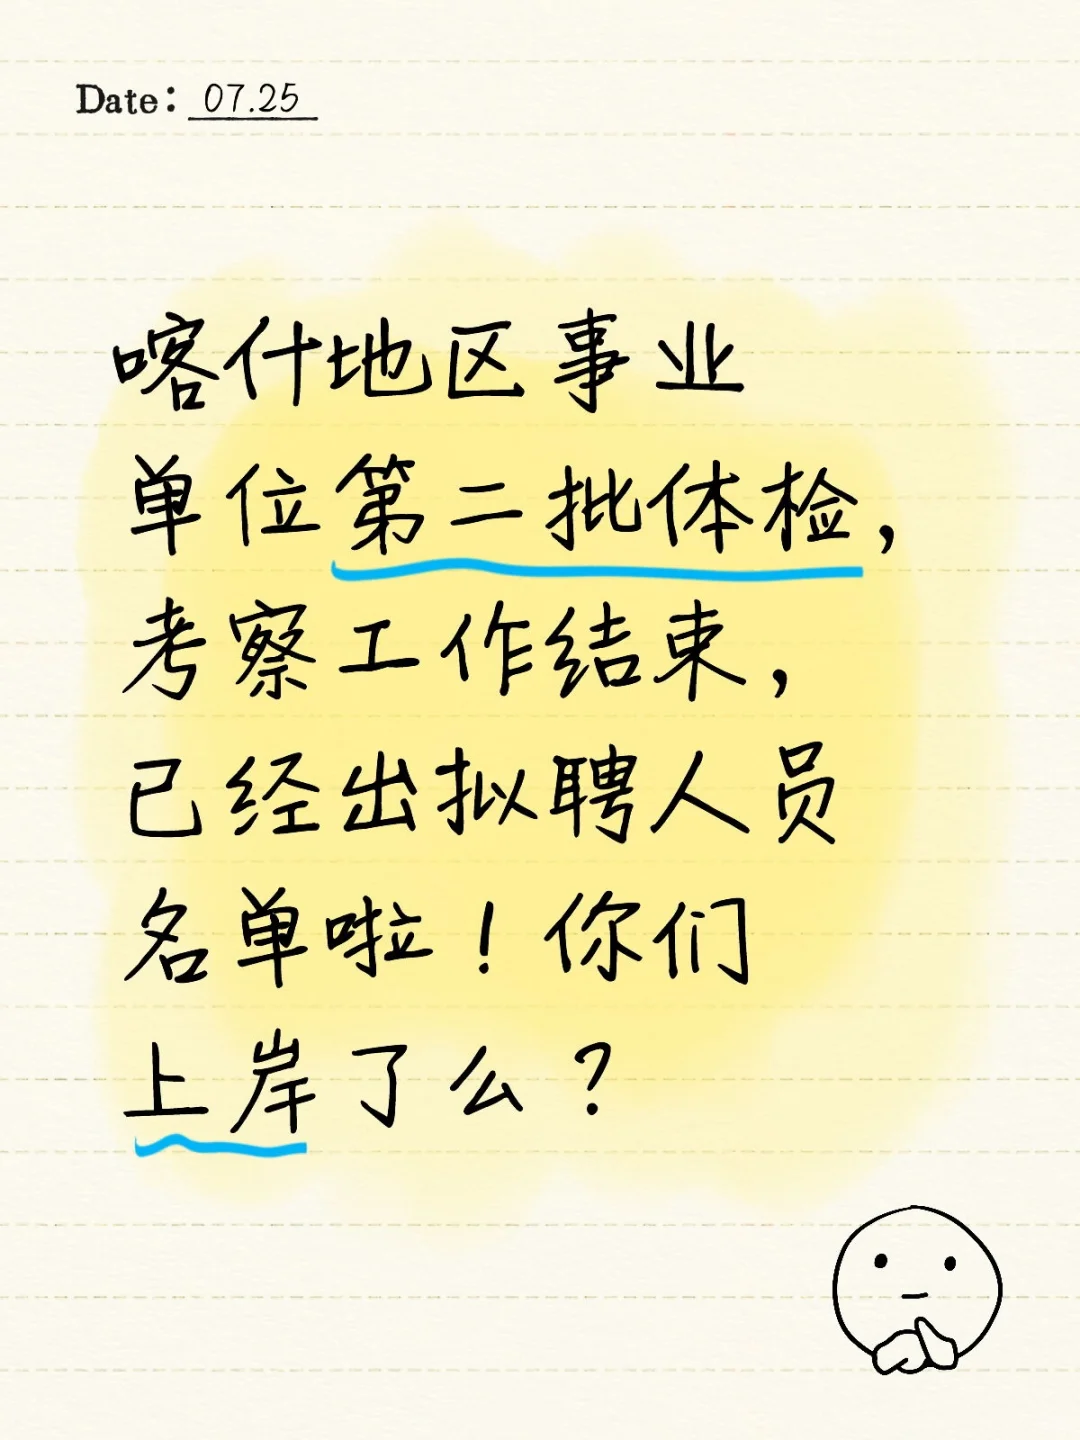 Date: 07.25
喀什地区事业
单位第二批体检，
考察工作结束，
已经出拟聘人员
名单啦！你们
上岸了么？